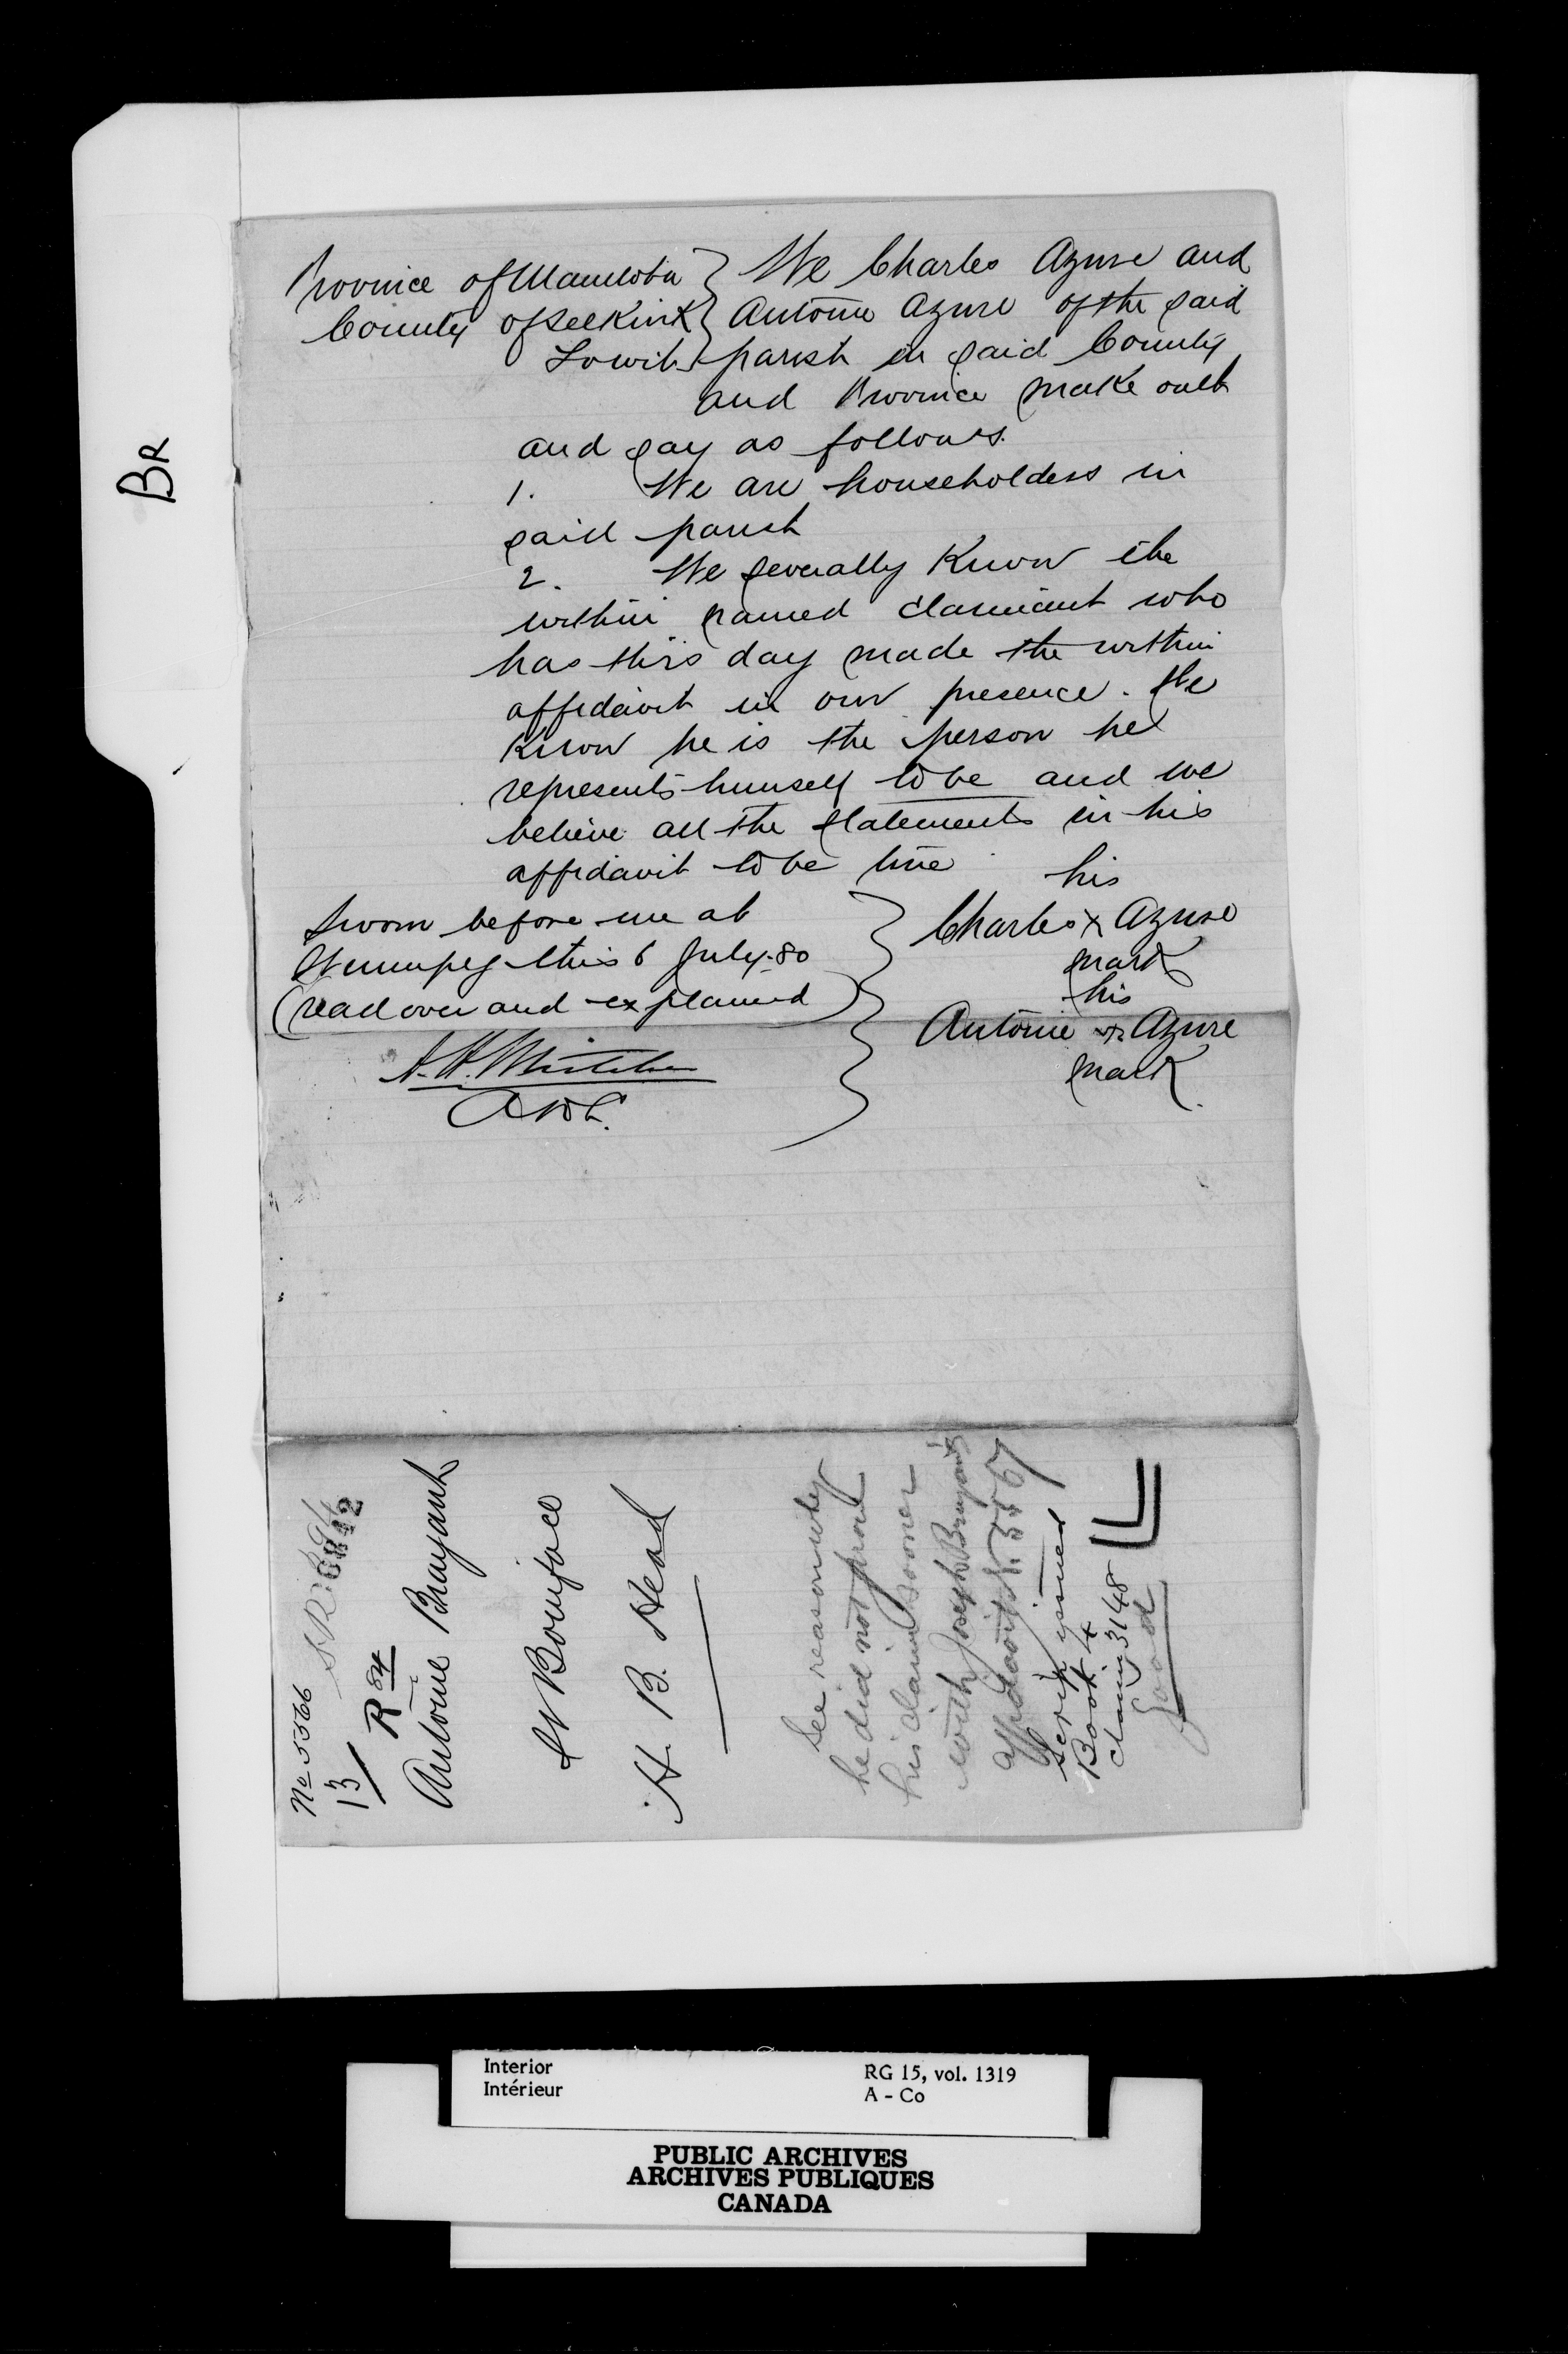 BR
Province of Manitoba } We Charles Azure and
County of Selkirk } Antoine Azure of the said
To wit } parish in said County
and Province make oath
and say as follows.
1. We are householders in
said parish
2. We severally know the
within named claimant who
has this day made the within
affidavit in our presence. We
know he is the person he
represents himself to be and we
believe all the statements in his
affidavit to be true
Sworn before me at
Winnipeg this 6 July 80
(read over and explained)
his
Charles x Azure
mark
his
Antoine x Azure
mark
No 5566
13
R 84
Antoine Bruyant
St Boniface
H. B. Head
See reason why
he did not prove
his claim sooner
with Joseph Bruyant's
affidavit N. 5567
Scrip issued
Book 4
Claim 3148
Good
Interior
Intérieur
RG 15, vol. 1319
A - Co
PUBLIC ARCHIVES
ARCHIVES PUBLIQUES
CANADA